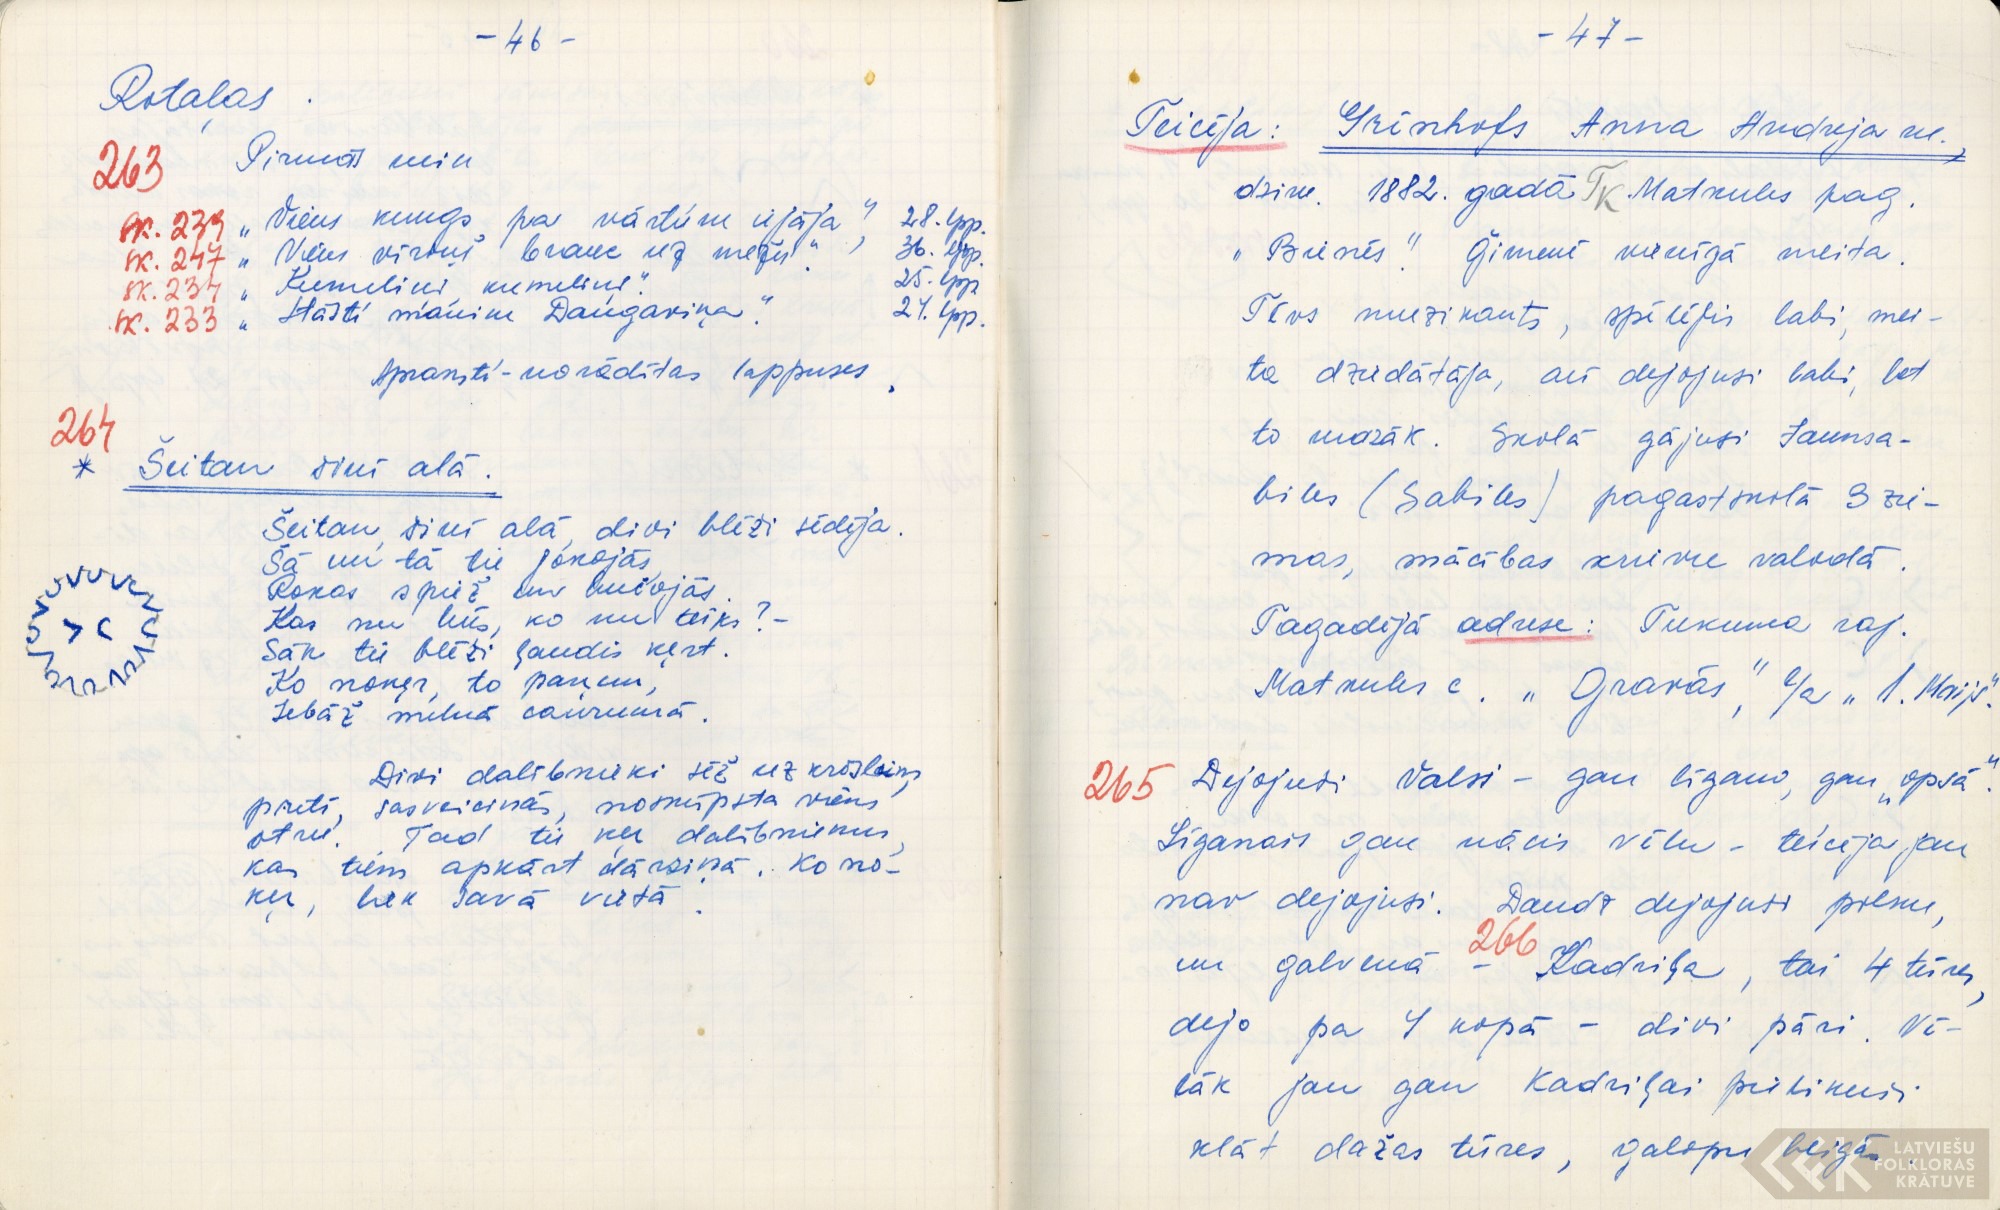 - 46 -
Rotaļas.
263 Pirmās min
sk. 239 „Viens kungs pa vārtiem iejāja”, 28. lpp.
sk. 247 „Viens vīriņš brauc uz mežu”, 36. lpp.
sk. 234 „Kumeliņi kumeliņi.” 25. lpp.
sk. 233 „Stāsti māmiņ Daugaviņa.” 24. lpp.
Apraksti - norādītas lappuses.
264
* Šeitan šinī alā.
Šeitan, šinī alā, divi blēži sēdēja.
Šā un tā tie jokojās,
Rokas spiež un bučojās.
Kas nu būs, ko nu teiks? -
Sāk tie blēži ļaudis ķert.
Ko noķer, to paņem,
Iebāž melnā caurumā.
Divi dalībnieki sēž uz krēsliem
pretī, sasveicinās, noskūpsta viens
otru. Tad tie ķer dalībniekus,
kas tiem apkārt dārziņā. Ko no-
ķer, liek savā vietā.
- 47 -
Teicēja: Grīnhofs Anna Andreja m.,
dzim. 1882. gadā TK Matkules pag.
„Brenēs”. Ģimenē vienīgā meita.
Tēvs muzikants, spēlējis labi, mei-
ta dziedātāja, arī dejojusi labi, bet
to mazāk. Skolā gājusi Jaunsa-
biles (Sabiles) pagastskolā 3 zie-
mas, mācības krievu valodā.
Tagadējā adrese: Tukuma raj.
Matkules c. „Gravās”, c/a „1. Maijs”.
265 Dejojusi Valsi - gan līgano, gan „opsā”.
Līganais gan nācis vēlu - teicēja jau
nav dejojusi. Daudz dejojusi polku,
un galvenā - 266 Kadriļa, tai 4 tūres,
dejo pa 4 kopā - divi pāri. Vē-
lāk jau gan Kadriļai pielikuši
klāt dažas tūres, galopu beigās.
LFK LATVIEŠU
FOLKLORAS
KRĀTUVE